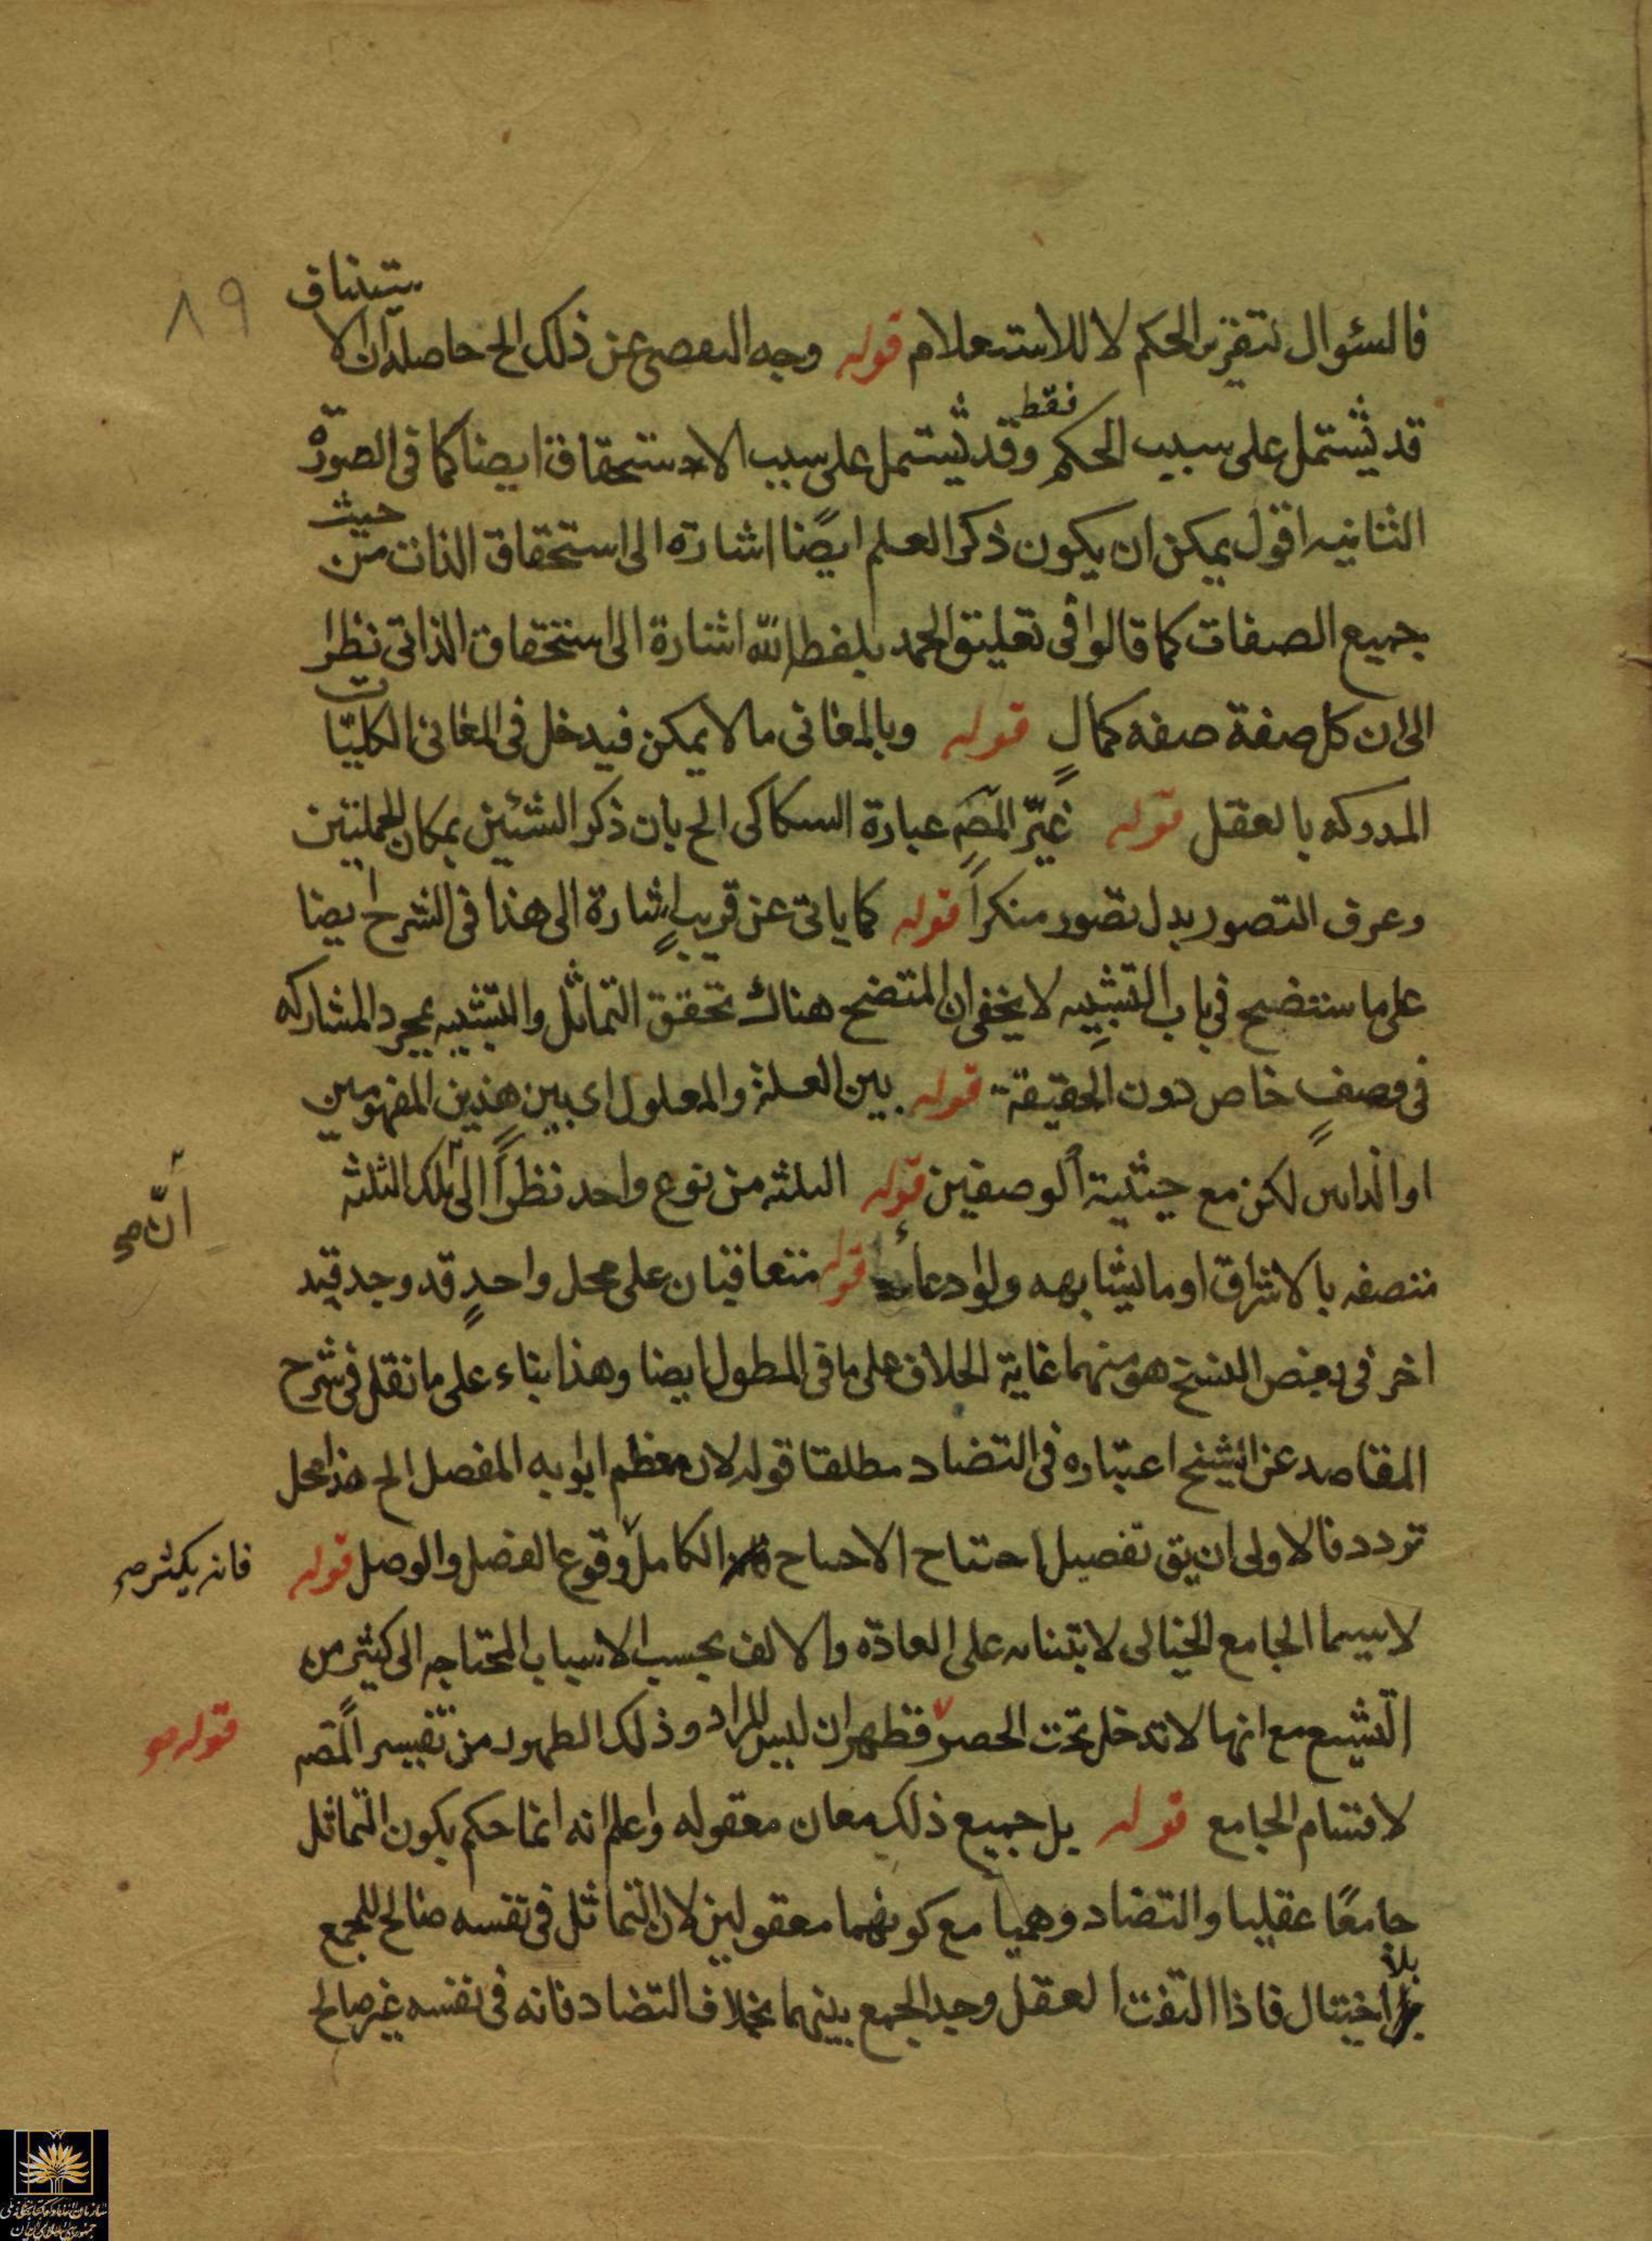 ٨٩
فالسئوال لتقرير الحكم لا للاستعلام قوله وجه التفصى عن ذلك الخ حاصله ان الاستيناف
قد يشتمل على سبب الحكم فقط وقد يشتمل على سبب الاستحقاق ايضا كما فى الصورة
الثانيه اقول يمكن ان يكون ذكر العلم ايضًا اشارة الى استحقاق الذات من حيث
جميع الصفات كما قالوا فى تعليق الحمد بلفظ الله اشارة الى استحقاق الذاتى نظرا
الى ان كل صفة صفه كمالٍ قوله وبالمعانى ما لا يمكن فيدخل فى المعانى الكليّات
المدركه بالعقل قوله غيّر المصَ عبارة السكاكى الخ بان ذكر الشئين بمكان الجملتين
وعرف التصور بدل تصور منكراً قوله كما ياتى عن قريبٍ اشارة الى هذا فى الشرح ايضا
على ما سنتضح فى باب التشبيه لا يخفى ان المتضح هناك تحقق التماثل والتشبيه بمجرد المشاركه
فى وصفٍ خاص دون الحقيقة قوله بين العلة والمعلول اى بين هذين المفهومين
او الذاتين لكن مع حيثية الوصفين قوله الثلثه من نوع واحد نظراً الى ان تلك الثلثه
متصفه بالاشراق او ما يشابهه ولو ادعاءً قوله متعاقبان على محل واحدٍ قد وجد قيد
اخر فى بعض النسخ هو بينهما غاية الخلاف على ما فى المطول ايضا وهذا بناء على ما نقله فى شرح
المقاصد عن الشيخ اعتباره فى التضاد مطلقا قوله لان معظم ابوابه المفصل الخ هذا محل
تردد فالاولى ان يق تفصيل احتياج الاحتياج الكامل فانه يكثر وقوع الفصل والوصل قوله
لا سيما الجامع الخيالى لابتنائه على العادة والالف بحسب الاسباب المحتاجه الى كثير من
التشيع مع انها لا تدخل تحت الحصر قوله فظهر ان ليس المراد وذلك الظهور من تفسير المصَ
لاقسام الجامع قوله بل جميع ذلك معان معقوله واعلم انه انما حكم بكون التماثل
جامعًا عقليا والتضاد وهميا مع كونهما معقولين لان التماثل فى نفسه صالح للجمع
بلا اختيال فاذا التفت العقل وجد الجمع بينهما بخلاف التضاد فانه فى نفسه غير صالح